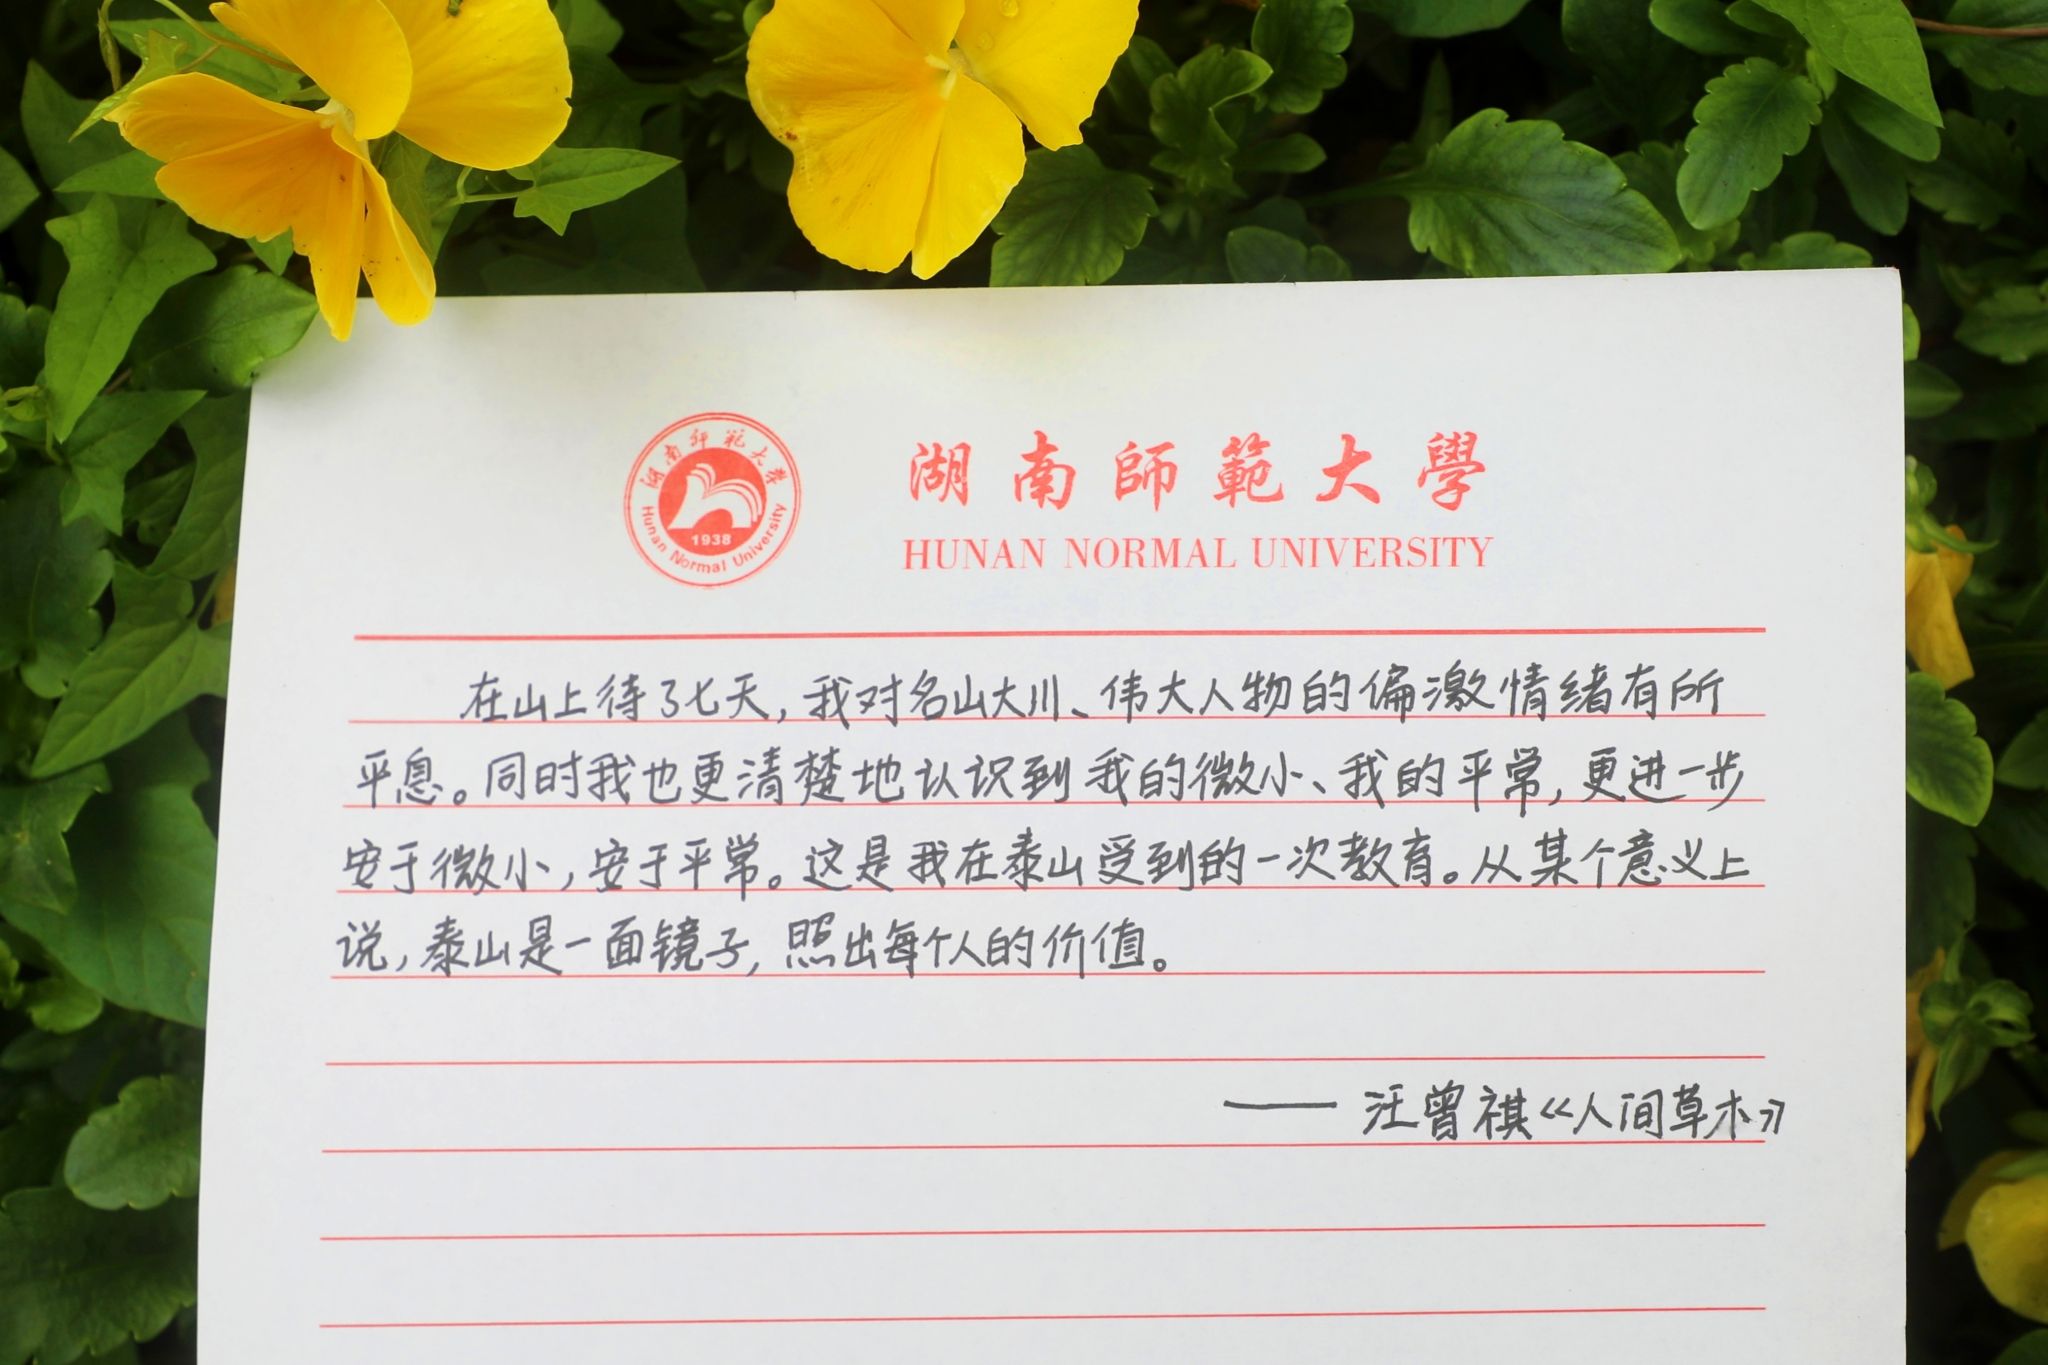 湖南师范大学
Hunan Normal University
1938
湖南師範大學
HUNAN NORMAL UNIVERSITY
在山上待了七天，我对名山大川、伟大人物的偏激情绪有所
平息。同时我也更清楚地认识到我的微小、我的平常，更进一步
安于微小，安于平常。这是我在泰山受到的一次教育。从某个意义上
说，泰山是一面镜子，照出每个人的价值。
—— 汪曾祺《人间草木》